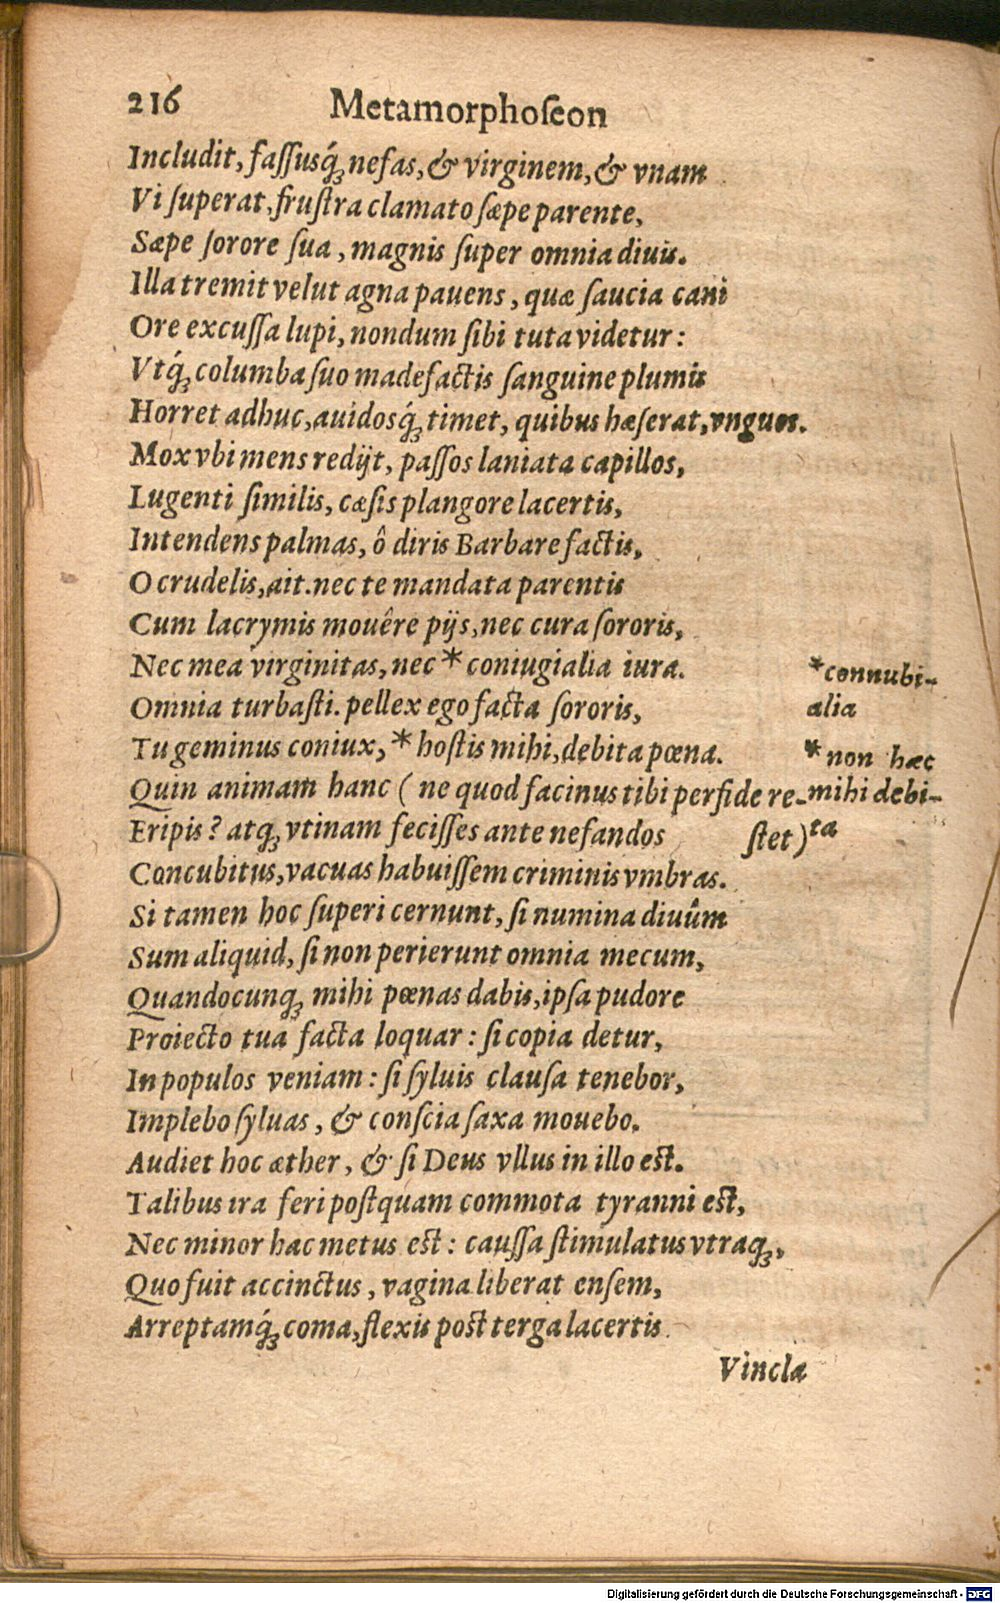 216 Metamorphoſeon
Includit, faſſusq́ꝫ nefas, & virginem, & vnam
Vi ſuperat, fruſtra clamato ſæpe parente,
Sæpe ſorore ſua, magnis ſuper omnia diuis.
Illa tremit velut agna pauens, quæ ſaucia cani
Ore excuſſa lupi, nondum ſibi tuta videtur:
Vtq́ꝫ columba ſuo madefactis ſanguine plumis
Horret adhuc, auidosq́ꝫ timet, quibus hæſerat, vngues.
Mox vbi mens redijt, paſſos laniata capillos,
Lugenti ſimilis, cæſis plangore lacertis,
Intendens palmas, ô diris Barbare factis,
O crudelis, ait. nec te mandata parentis
Cum lacrymis mouêre pijs, nec cura ſororis,
Nec mea virginitas, nec * coniugialia iura.
Omnia turbaſti. pellex ego facta ſororis,
Tu geminus coniux, * hoſtis mihi, debita pœna.
Quin animam hanc ( ne quod facinus tibi perfide re-
ſtet )
Eripis? atqꝫ vtinam feciſſes ante nefandos
Concubitus, vacuas habuiſſem criminis vmbras.
Si tamen hoc ſuperi cernunt, ſi numina diuûm
Sum aliquid, ſi non perierunt omnia mecum,
Quandocunqꝫ mihi pœnas dabis, ipſa pudore
Proiecto tua facta loquar: ſi copia detur,
In populos veniam: ſi ſyluis clauſa tenebor,
Implebo ſyluas, & conſcia ſaxa mouebo.
Audiet hoc æther, & ſi Deus vllus in illo eſt.
Talibus ira feri poſtquam commota tyranni eſt,
Nec minor hac metus eſt: cauſſa ſtimulatus vtraqꝫ,
Quo fuit accinctus, vagina liberat enſem,
Arreptamq́ꝫ coma, flexis poſt terga lacertis
Vincla
*connubi-
alia
* non hæc
mihi debi-
ta
Digitalisierung gefördert durch die Deutsche Forschungsgemeinschaft - DFG